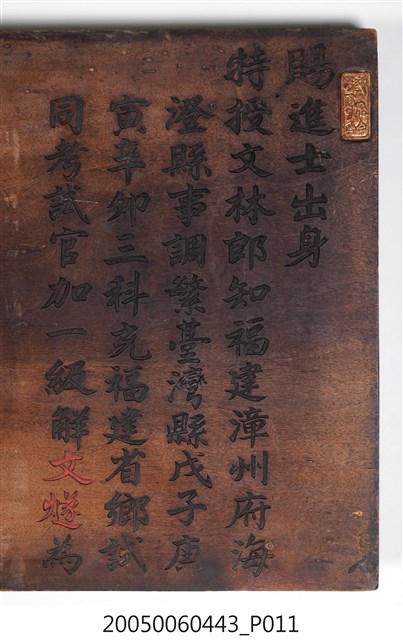 賜進士出身
特授文林郎知福建漳州府海
澄縣事調繁臺灣縣戊子庚
寅辛卯三科充福建省鄉試
同考試官加一級解文燧為
20050060443_P011